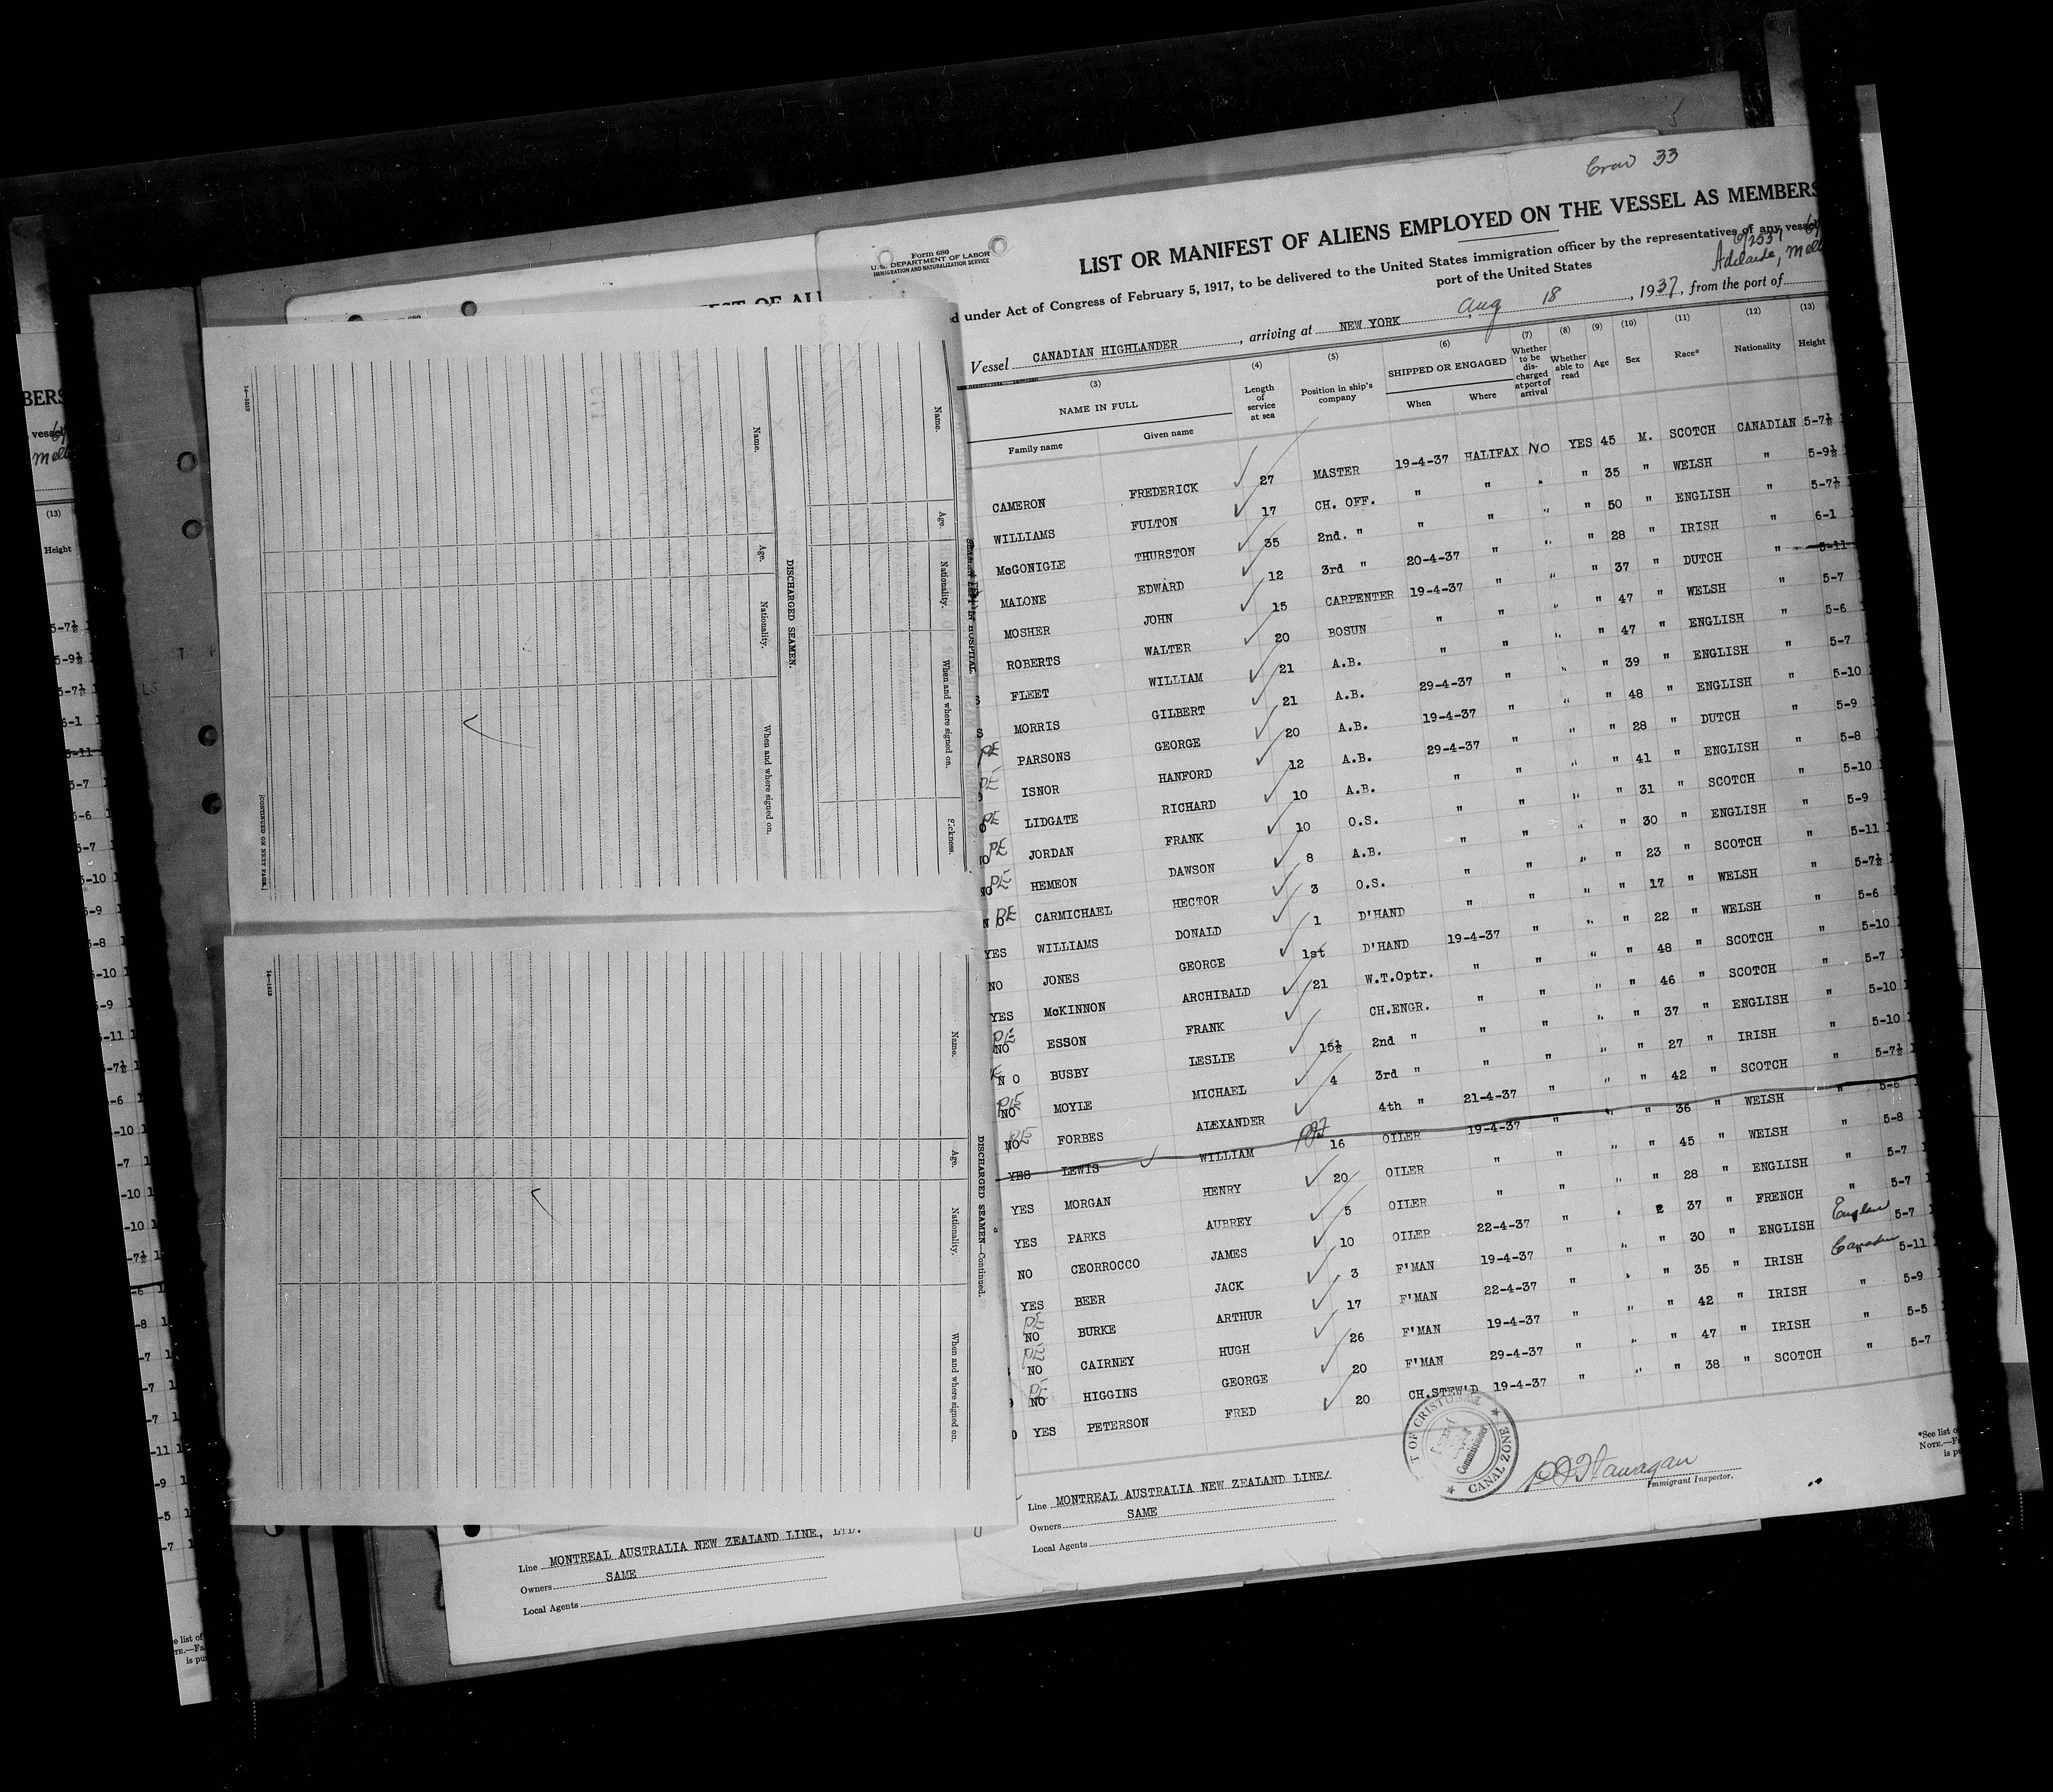 Crew 33
Form 680
U.S. DEPARTMENT OF LABOR
IMMIGRATION AND NATURALIZATION SERVICE
LIST OR MANIFEST OF ALIENS EMPLOYED ON THE VESSEL AS MEMBERS
under Act of Congress of February 5, 1917, to be delivered to the United States immigration officer by the representatives of any vessel
port of the United States
Adelaide, Mel
Vessel CANADIAN HIGHLANDER, arriving at NEW YORK Aug 18, 1937, from the port of
(3) (4) (5) (6) (7) (8) (9) (10) (11) (12) (13)
NAME IN FULL Length of service at sea Position in ship's company SHIPPED OR ENGAGED Whether to be discharged at port of arrival Whether able to read Age Sex Race* Nationality Height
Family name Given name When Where
CAMERON FREDERICK 27 MASTER 19-4-37 HALIFAX NO YES 45 M. SCOTCH CANADIAN 5-7½
WILLIAMS FULTON 17 CH. OFF. " " " " 35 " WELSH " 5-9½
McGONIGLE THURSTON 35 2nd. " " " " " 50 " ENGLISH " 5-7½
MALONE EDWARD 12 3rd " 20-4-37 " " " 28 " IRISH " 6-1
MOSHER JOHN 15 CARPENTER 19-4-37 " " " 37 " DUTCH " 5-11
ROBERTS WALTER 20 BOSUN " " " " 47 " WELSH " 5-7
FLEET WILLIAM 21 A.B. " " " " 47 " ENGLISH " 5-6
MORRIS GILBERT 21 A.B. 29-4-37 " " " 39 " ENGLISH " 5-7
PE PARSONS GEORGE 20 A.B. 19-4-37 " " " 48 " ENGLISH " 5-10
PE ISNOR HANFORD 12 A.B. 29-4-37 " " " 28 " DUTCH " 5-9
PE LIDGATE RICHARD 10 A.B. " " " " 41 " ENGLISH " 5-8
PE JORDAN FRANK 10 O.S. " " " " 31 " SCOTCH " 5-10
NO PE HEMEON DAWSON 8 A.B. " " " " 30 " ENGLISH " 5-9
NO PE CARMICHAEL HECTOR 3 O.S. " " " " 23 " SCOTCH " 5-11
YES WILLIAMS DONALD 1 D'HAND " " " " 17 " WELSH " 5-7½
NO JONES GEORGE 1st D'HAND 19-4-37 " " " 22 " WELSH " 5-6
YES McKINNON ARCHIBALD 21 W.T.Optr. " " " " 48 " SCOTCH " 5-10
PE NO ESSON FRANK CH.ENGR. " " " " 46 " SCOTCH " 5-7
NO BUSBY LESLIE 15½ 2nd " " " " " 37 " ENGLISH " 5-10
PE NO MOYLE MICHAEL 4 3rd " " " " " 27 " IRISH " 5-10
NO PE FORBES ALEXANDER 4th " 21-4-37 " " " 42 " SCOTCH " 5-7½
YES LEWIS WILLIAM 16 OILER 19-4-37 " " " 36 " WELSH " 5-6
YES MORGAN HENRY 20 OILER " " " " 45 " WELSH " 5-8
YES PARKS AUBREY 5 OILER " " " " 28 " ENGLISH " 5-7
NO CEORROCCO JAMES 10 OILER 22-4-37 " " " 37 " FRENCH " 5-7
YES BEER JACK 3 F'MAN 19-4-37 " " " 30 " ENGLISH England 5-7
PE NO BURKE ARTHUR 17 F'MAN 22-4-37 " " " 35 " IRISH Canadian 5-11
PE NO CAIRNEY HUGH 26 F'MAN 19-4-37 " " " 42 " IRISH " 5-9
PE NO HIGGINS GEORGE 20 F'MAN 29-4-37 " " " 47 " IRISH " 5-5
YES PETERSON FRED 20 CH.STEW'D 19-4-37 " " " 38 " SCOTCH " 5-7
CRISTOBAL
CANAL ZONE
Line MONTREAL AUSTRALIA NEW ZEALAND LINE/
Owners SAME
Local Agents
Immigrant Inspector.
*See list o
NOTE.—F
is p
Name. Age. Nationality. When and where signed on. Sickness.
DISCHARGED SEAMEN.
Name. Age. Nationality. When and where signed on.
[CONTINUED ON NEXT PAGE.]
DISCHARGED SEAMEN—Continued.
Name. Age. Nationality. When and where signed on.
Line MONTREAL AUSTRALIA NEW ZEALAND LINE, LTD.
Owners SAME
Local Agents
BERS
vessel
(13)
Height
5-7½
5-9½
5-7½